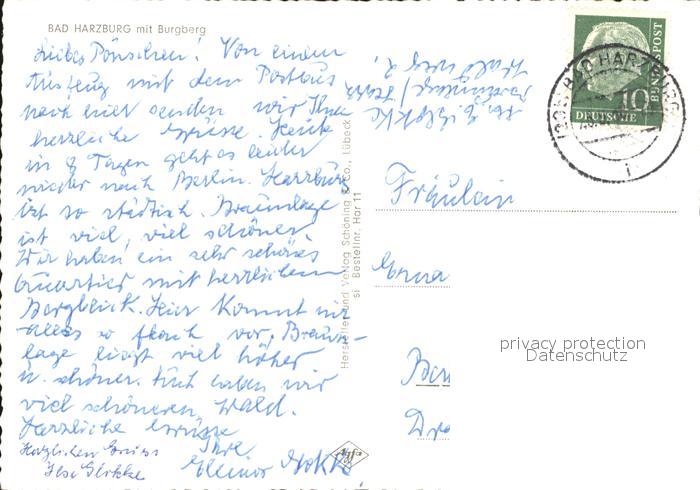 BAD HARZBURG mit Burgberg
Liebes Pönschen! Von einem
Ausflug mit dem Postbus
nach hier senden wir Ihnen
herrliche Grüsse. Heute
in 8 Tagen geht es leider
wieder nach Berlin. Harzburg
ist so städtisch. Braunlage
ist viel, viel schöner
Wir haben ein sehr schönes
Quartier mit herrlichem
Bergblick. Hier kommt mir
alles so flach vor, Braun-
lage liegt viel höher
u. schöner. Auch haben wir
viel schöneren Wald.
Herzliche Grüsse
Ihre
Herzlichen Gruss
Ilse
Hersteller und Verlag Schöning & Co., Lübeck
si Bestellnr. Har 11
Braunlage / Harz
Fräulein
Erna
Agfa
BAD HARZBURG
10
DEUTSCHE
BUNDESPOST
privacy protection
Datenschutz